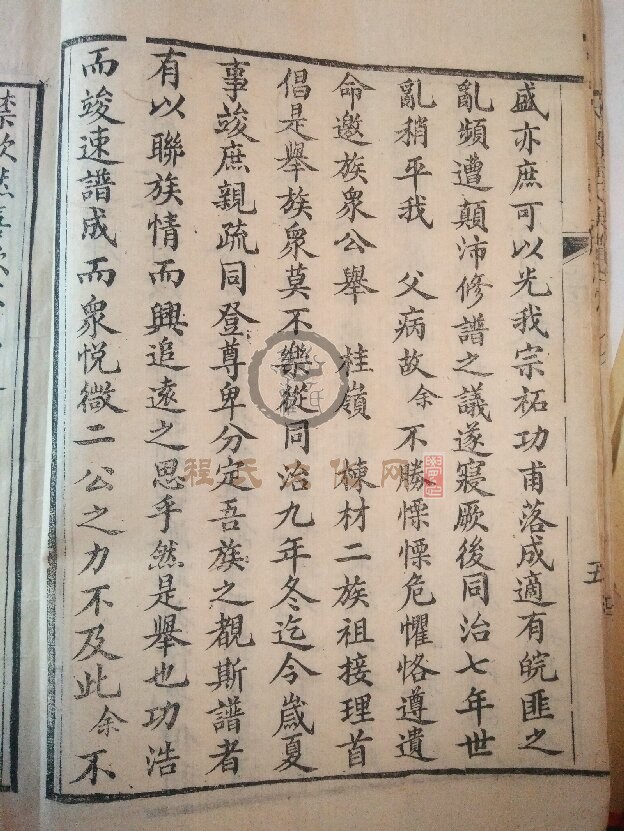 盛亦庶可以光我宗祏功甫落成適有皖匪之
亂頻遭顛沛修譜之議遂寢厥後同治七年世
亂稍平我 父病故余不勝慄慄危懼恪遵遺
命邀族衆公舉 桂嶺 棟材二族祖接理首
倡是舉族衆莫不樂從同治九年冬迄今歲夏
事竣庶親疏同登尊卑分定吾族之覩斯譜者
有以聯族情而興追遠之思乎然是舉也功浩
而竣速譜成而衆悅微二 公之力不及此余不
程氏文化网
五